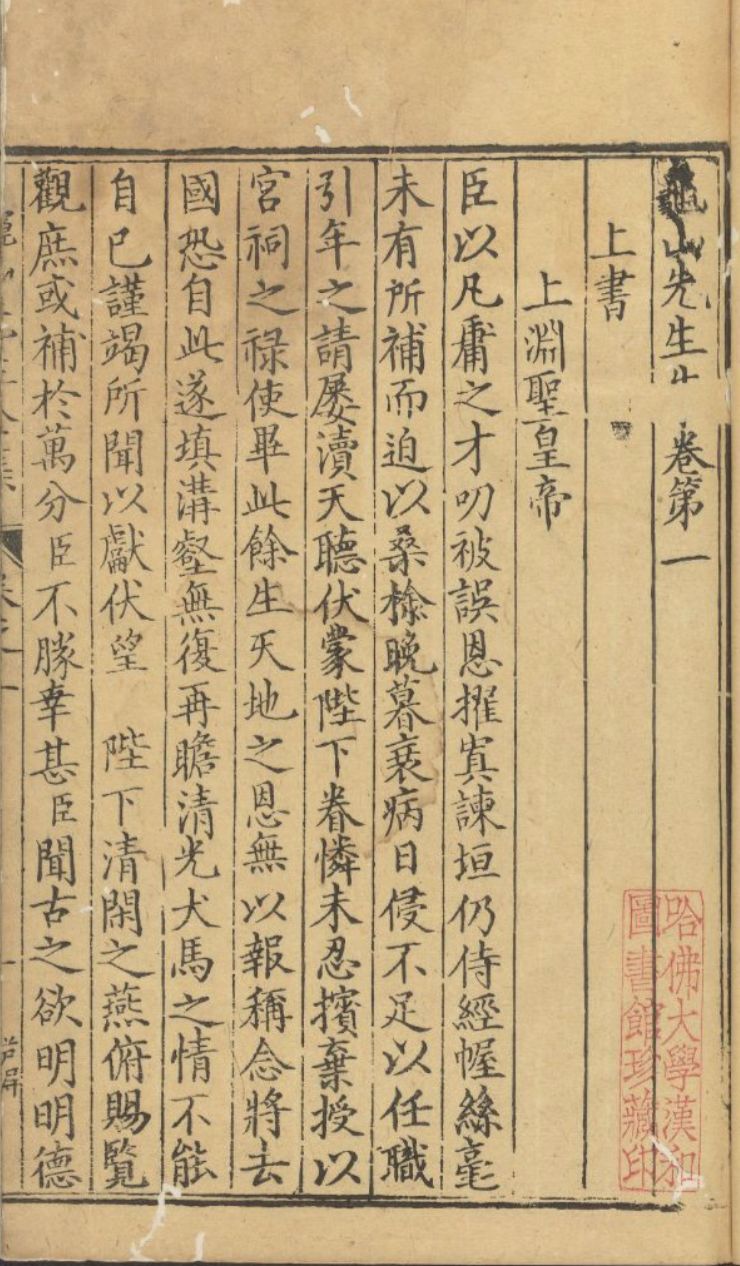 龜山先生 卷第一
上書
上淵聖皇帝
臣以凡庸之才叨被誤恩擢寘諫垣仍侍經幄絲毫
未有所補而迫以桑榆晚暮衰病日侵不足以任職
引年之請屡瀆天聽伏蒙陛下眷憐未忍擯棄授以
宮祠之禄使畢此餘生天地之恩無以報稱念將去
國恐自此遂填溝壑無復再瞻清光犬馬之情不能
自已謹竭所聞以獻伏望 陛下清閑之燕俯賜覽
觀庶或補於萬分臣不勝幸甚臣聞古之欲明明德
哈佛大學漢和
圖書館珍藏印